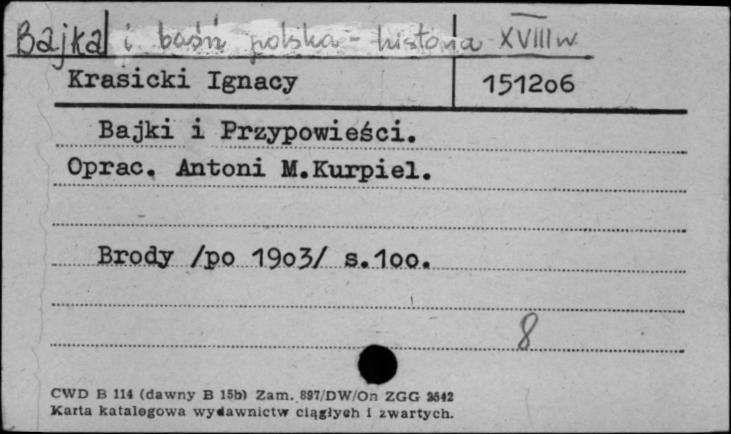 Bajka i baśń polska - historia XVIII w
Krasicki Ignacy 151206
Bajki i Przypowieści.
Oprac. Antoni M.Kurpiel.
Brody /po 1903/ s.100.
8
CWD B 114 (dawny B 15b) Zam. 897/DW/On ZGG 2542
Karta katalogowa wydawnictw ciągłych i zwartych.